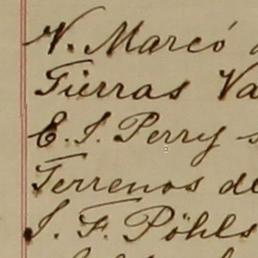 N. Marcó
Tierras Va
E. I. Perry
Terrenos de
I. F. Pöhls